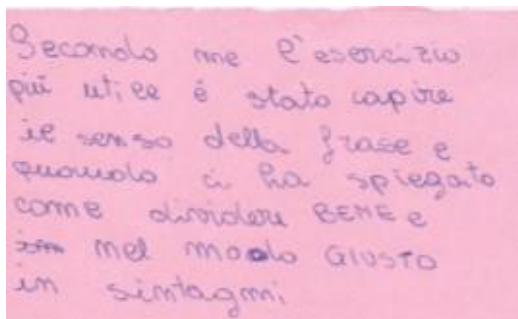 Secondo me l'esercizio
più utile è stato capire
il senso della frase e
quando ci ha spiegato
come dividere BENE e
nel modo GIUSTO
in sintagmi